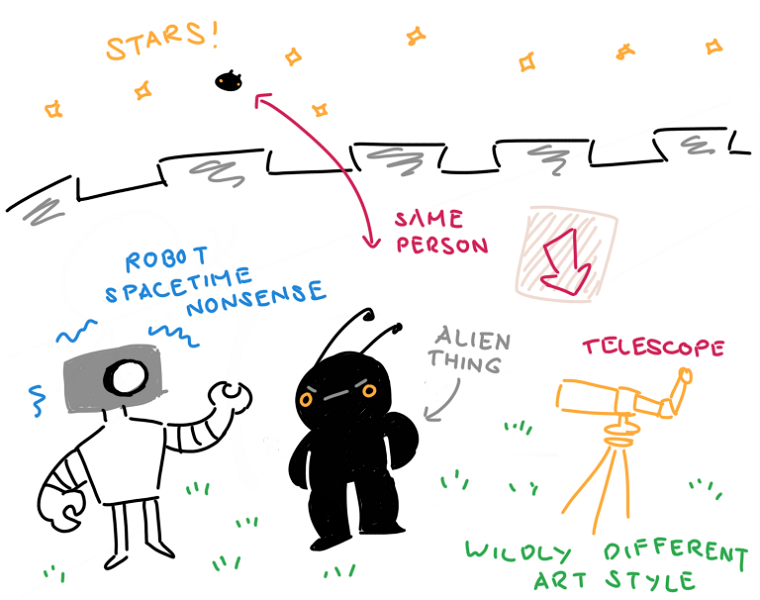 STARS!
SAME
PERSON
ROBOT
SPACETIME
NONSENSE
ALIEN
THING
TELESCOPE
WILDLY DIFFERENT
ART STYLE